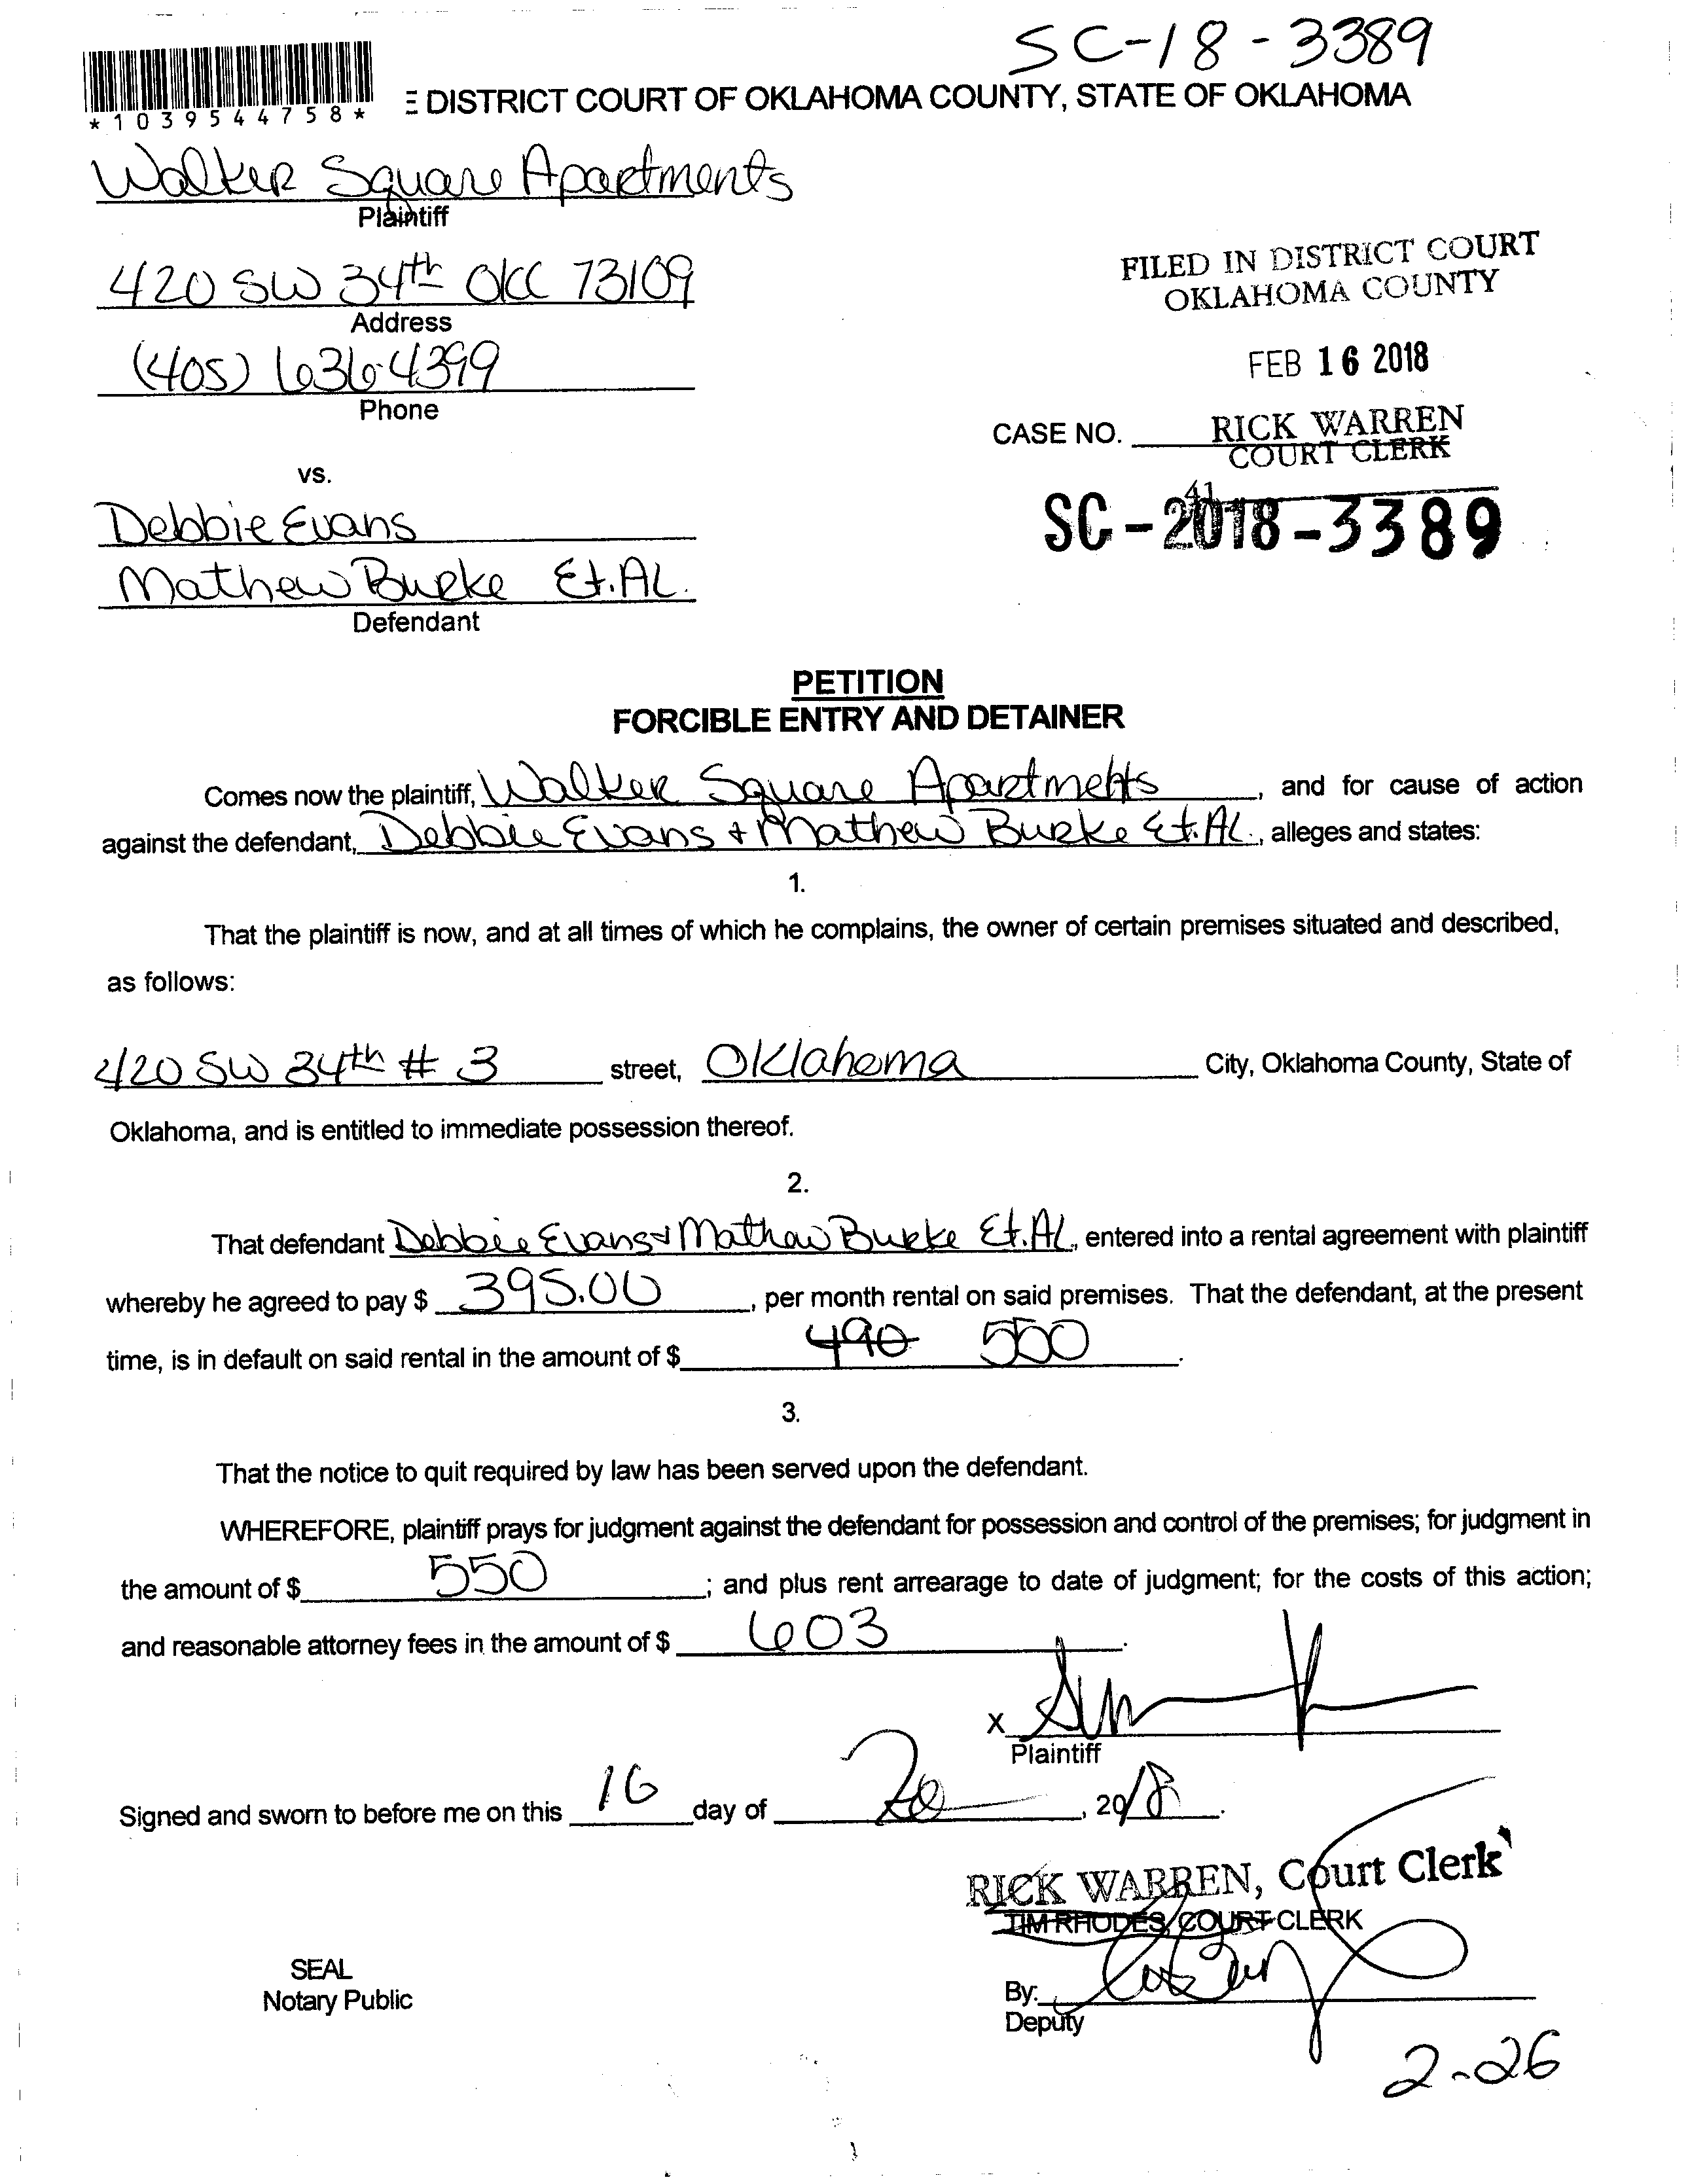 SC-18-3389
*1039544758*
E DISTRICT COURT OF OKLAHOMA COUNTY, STATE OF OKLAHOMA
Walker Square Apartments
Plaintiff
420 SW 34th OKC 73109
Address
(405) 636-4399
Phone
FILED IN DISTRICT COURT
OKLAHOMA COUNTY
FEB 16 2018
RICK WARREN
COURT CLERK
CASE NO.
41
SC-2018-3389
vs.
Debbie Evans
Mathew Burke Et.AL.
Defendant
PETITION
FORCIBLE ENTRY AND DETAINER
Comes now the plaintiff, Walker Square Apartments, and for cause of action
against the defendant, Debbie Evans + Mathew Burke Et.AL., alleges and states:
1.
That the plaintiff is now, and at all times of which he complains, the owner of certain premises situated and described,
as follows:
420 SW 34th # 3 street, Oklahoma City, Oklahoma County, State of
Oklahoma, and is entitled to immediate possession thereof.
2.
That defendant Debbie Evans + Mathew Burke Et.AL., entered into a rental agreement with plaintiff
whereby he agreed to pay $ 395.00, per month rental on said premises. That the defendant, at the present
time, is in default on said rental in the amount of $ 490 550.
3.
That the notice to quit required by law has been served upon the defendant.
WHEREFORE, plaintiff prays for judgment against the defendant for possession and control of the premises; for judgment in
the amount of $ 550; and plus rent arrearage to date of judgment; for the costs of this action;
and reasonable attorney fees in the amount of $ 603.
X
Plaintiff
Signed and sworn to before me on this 16 day of , 2018.
RICK WARREN, Court Clerk
TIM RHODES, COURT CLERK
SEAL
Notary Public
By:
Deputy
2-26